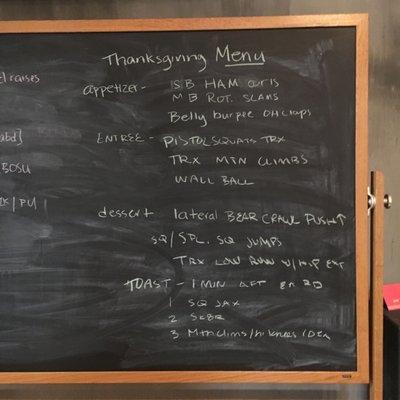 Thanksgiving Menu
appetizer - SB HAM curls
MB ROT. SLAMS
Belly burpee OH claps
ENTREE - PISTOL SQUATS TRX
TRX MTN CLIMBS
WALL BALL
dessert lateral BEAR CRAWL PUSH↑
SQ/SPL. SQ JUMPS
TRX LOW ROW W/HIP EXT
TOAST - 1 MIN AFT EA RD
1 SQ JAX
2
3 Mtnclims/hiknees/
raises
abd]
BOSU
/PU